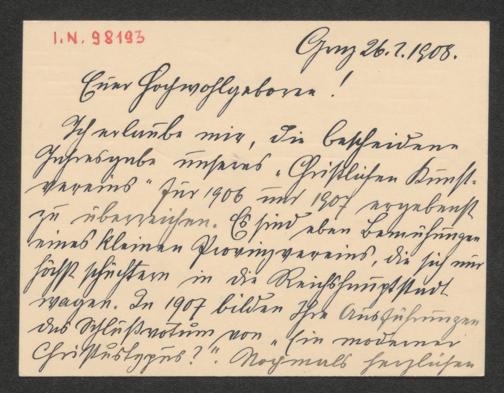 I.N. 98193
Graz 26.7.1908.
Euer Hochwohlgeboren!
Ich erlaube mir, die bescheidene
Jahresgabe unseres „Christlichen Kunst-
vereins" für 1906 und 1907 ergebenst
zu überreichen. Es sind eben Bemühungen
eines kleinen Provinzvereins, die sich nur
höchst schüchtern in die Reichshauptstadt
wagen. In 1907 bilden Ihre Ausführungen
das Schlußvotum von „Ein moderner
Christustypus?". Nochmals herzlichen